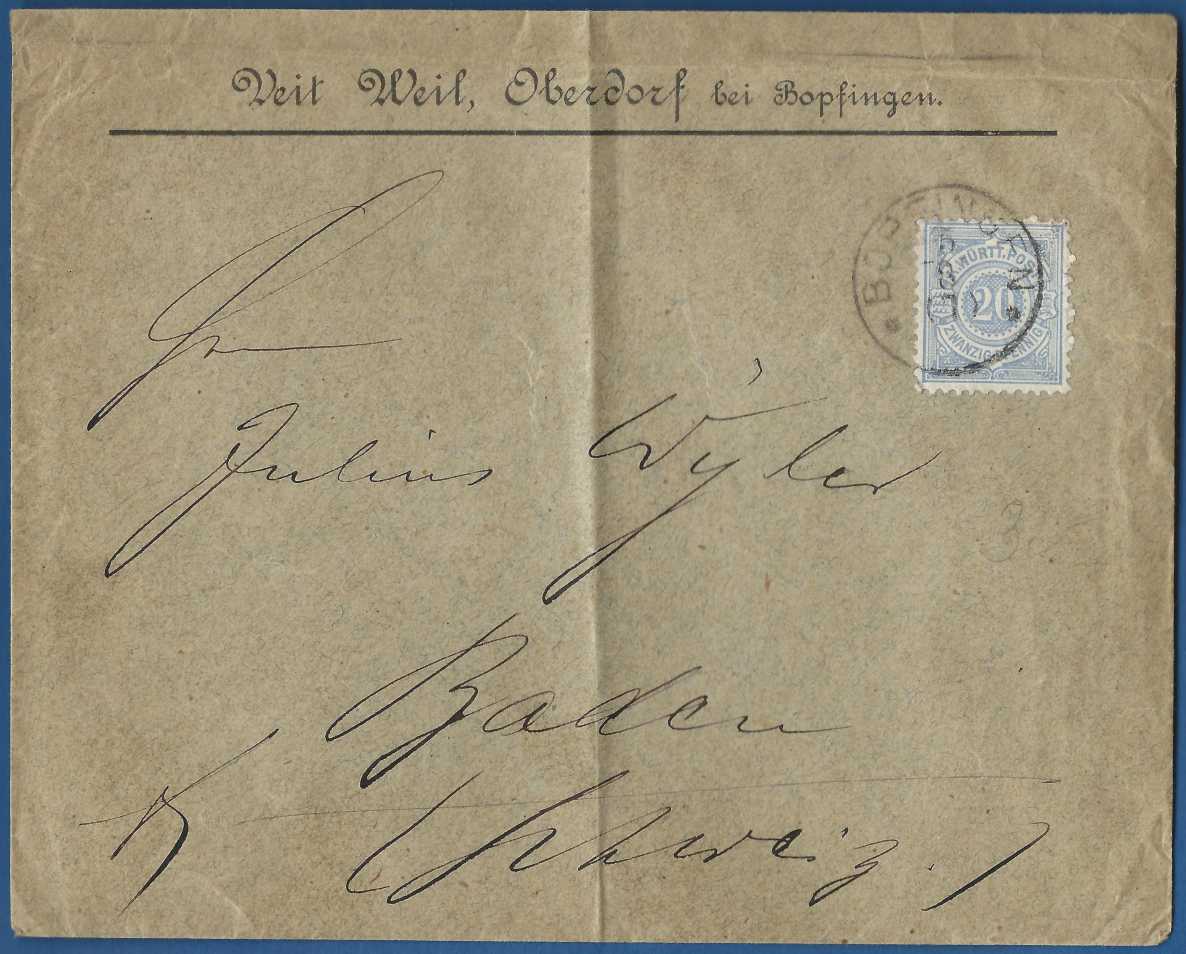 Veit Weil, Oberdorf bei Bopfingen.
BOPFINGEN
K. WÜRTT. POST
20
ZWANZIG PFENNIG
Julius Wyler
3
Baden
(Schweiz.)